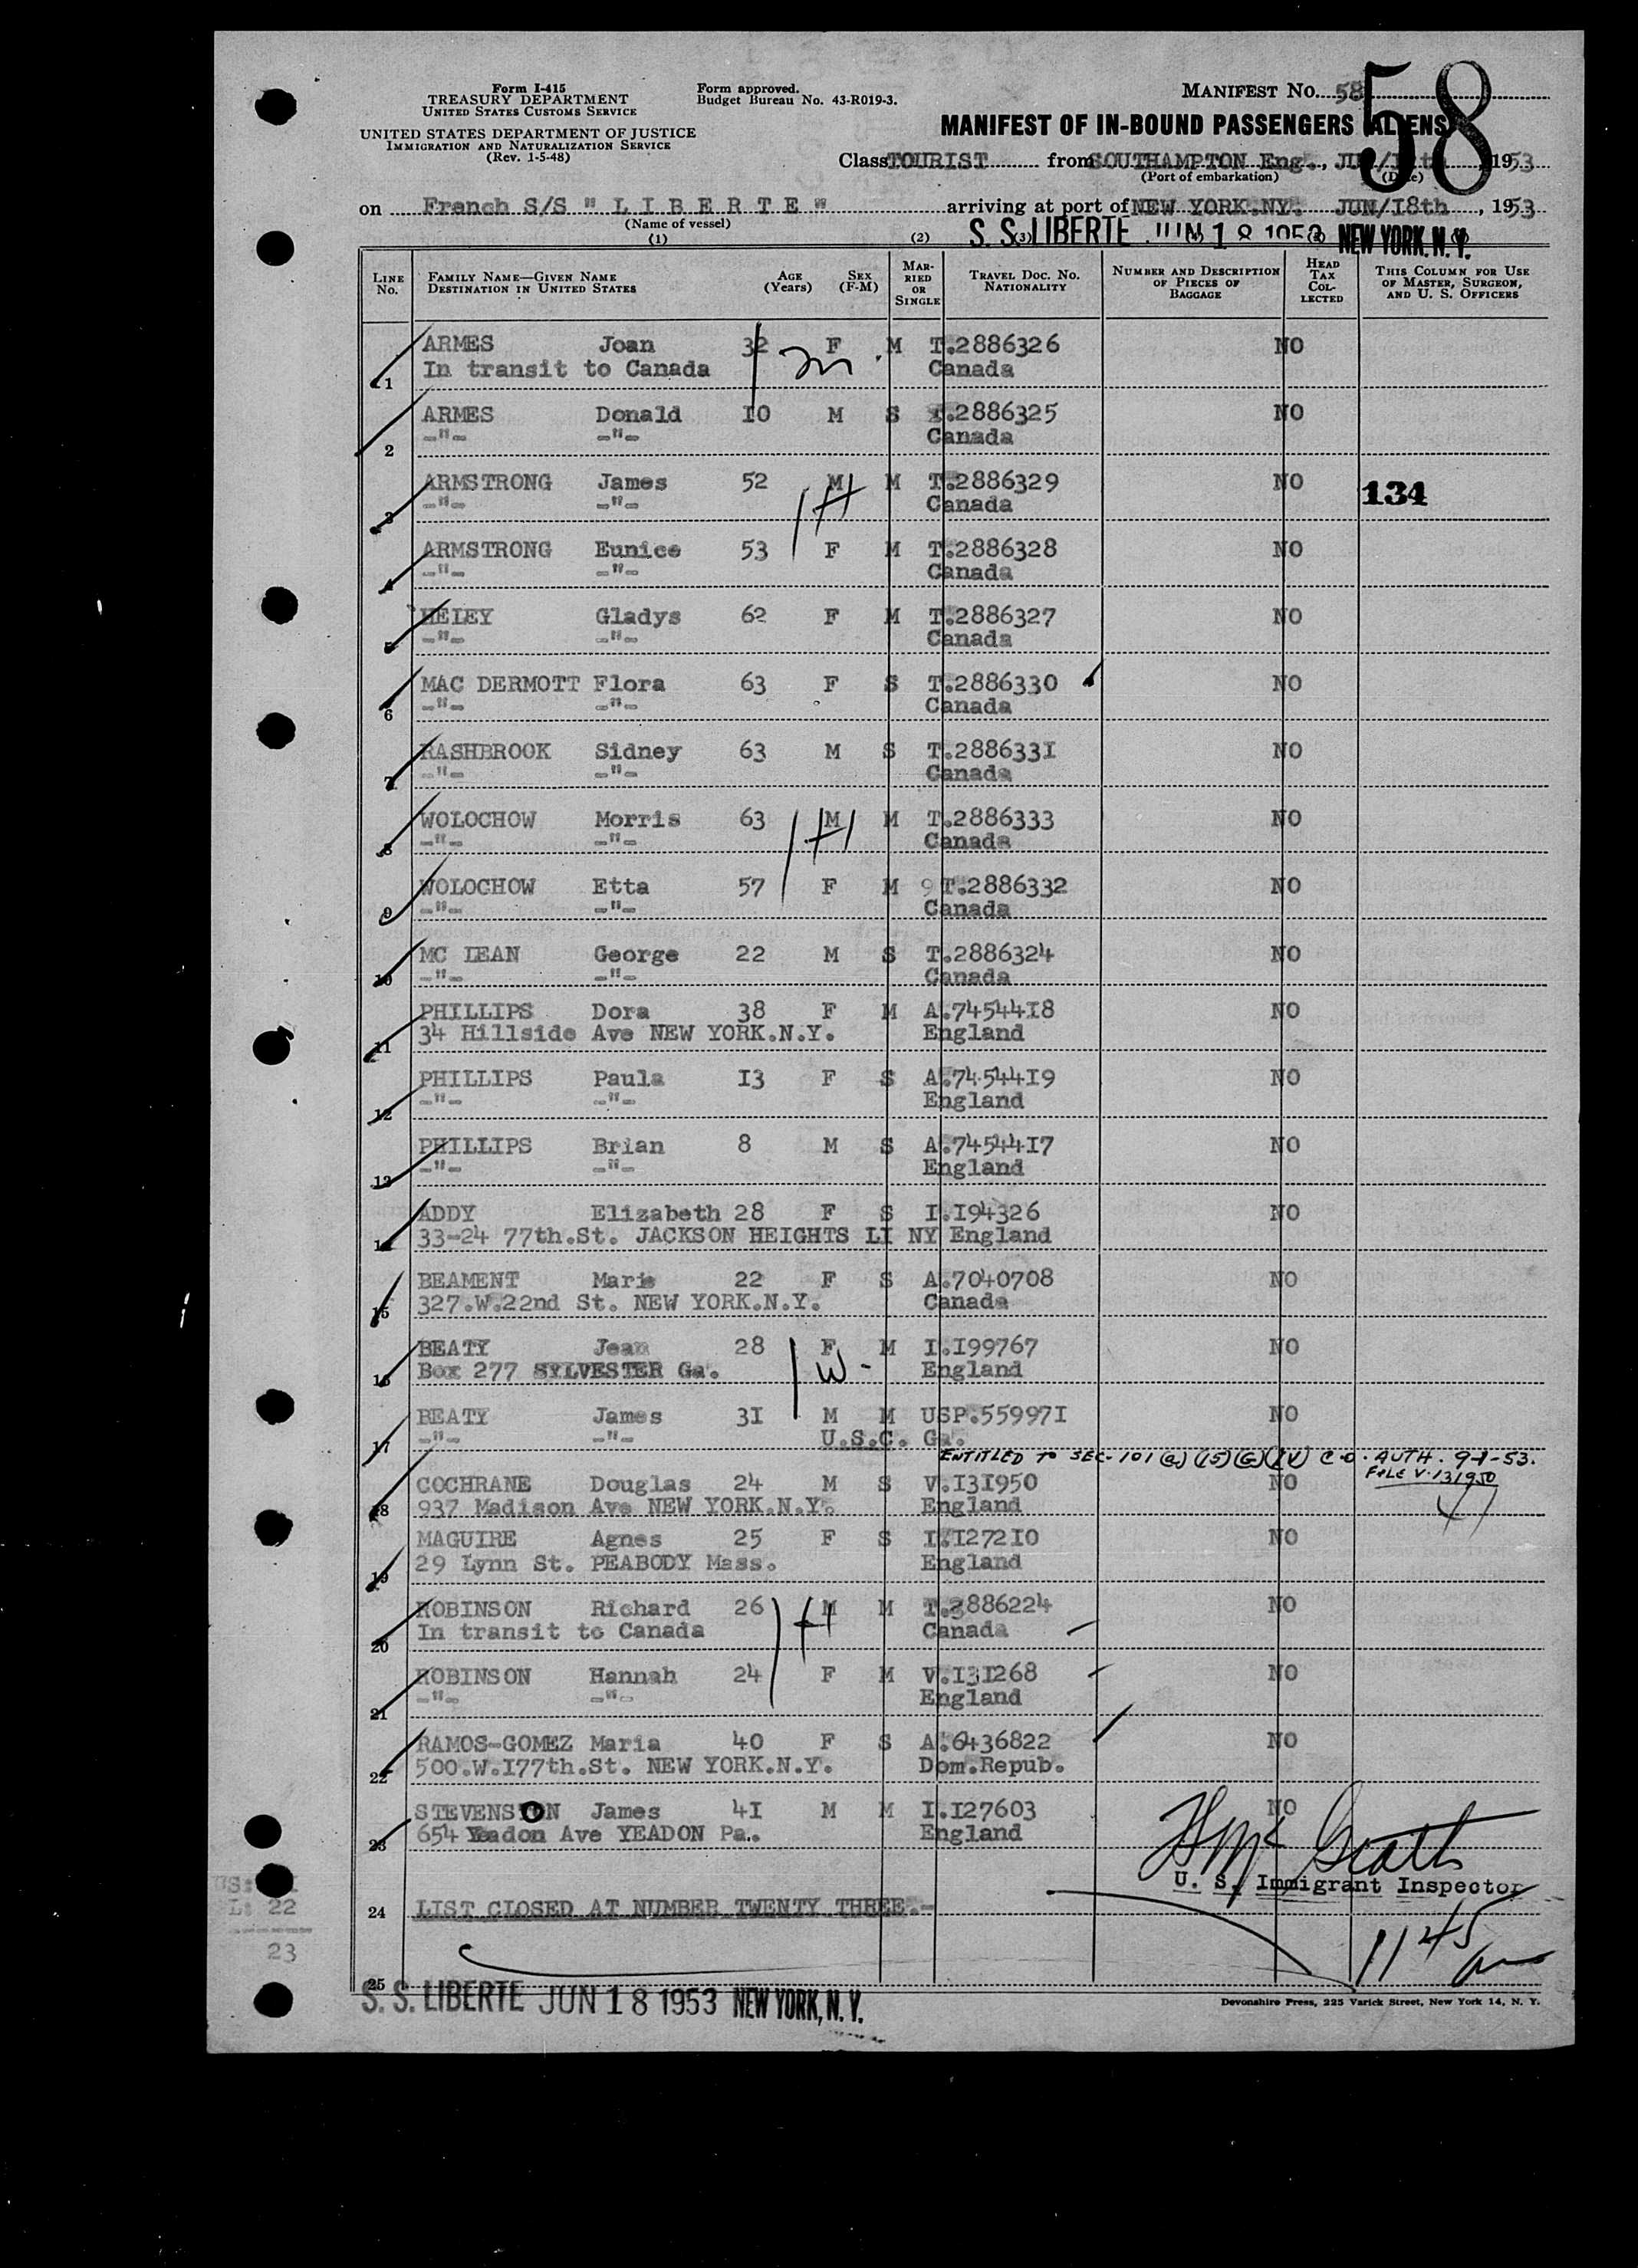 Form I-415
TREASURY DEPARTMENT
UNITED STATES CUSTOMS SERVICE
UNITED STATES DEPARTMENT OF JUSTICE
IMMIGRATION AND NATURALIZATION SERVICE
(Rev. 1-5-48)
Form approved.
Budget Bureau No. 43-R019-3.
MANIFEST No. 58
58
MANIFEST OF IN-BOUND PASSENGERS (ALIENS)
Class TOURIST from SOUTHAMPTON Eng., 1953
(Port of embarkation) (Date)
on French S/S " L I B E R T E " arriving at port of NEW YORK.NY. JUN/I8th, 1953
(Name of vessel)
S. S. LIBERTE JUN 1 8 1953 NEW YORK, N. Y.
(1) (2) (3)
LINE No. FAMILY NAME—GIVEN NAME DESTINATION IN UNITED STATES AGE (Years) SEX (F-M) MARRIED OR SINGLE TRAVEL DOC. NO. NATIONALITY NUMBER AND DESCRIPTION OF PIECES OF BAGGAGE HEAD TAX COLLECTED THIS COLUMN FOR USE OF MASTER, SURGEON, AND U. S. OFFICERS
1 ARMES Joan 32 F M T.2886326 NO
In transit to Canada Canada
2 ARMES Donald I0 M S T.2886325 NO
-"- -"- Canada
3 ARMSTRONG James 52 M M T.2886329 NO 134
-"- -"- Canada
4 ARMSTRONG Eunice 53 F M T.2886328 NO
-"- -"- Canada
5 HELEY Gladys 62 F M T.2886327 NO
-"- -"- Canada
6 MAC DERMOTT Flora 63 F S T.2886330 NO
-"- -"- Canada
7 RASHBROOK Sidney 63 M S T.288633I NO
-"- -"- Canada
8 WOLOCHOW Morris 63 M M T.2886333 NO
-"- -"- Canada
9 WOLOCHOW Etta 57 F M 9 T.2886332 NO
-"- -"- Canada
10 MC LEAN George 22 M S T.2886324 NO
-"- -"- Canada
11 PHILLIPS Dora 38 F M A.74544I8 NO
34 Hillside Ave NEW YORK.N.Y. England
12 PHILLIPS Paula I3 F S A.74544I9 NO
-"- -"- England
13 PHILLIPS Brian 8 M S A.74544I7 NO
-"- -"- England
14 ADDY Elizabeth 28 F S I.I94326 NO
33-24 77th.St. JACKSON HEIGHTS LI NY England
15 BEAMENT Marie 22 F S A.7040708 NO
327.W.22nd St. NEW YORK.N.Y. Canada
16 BEATY Jean 28 F M I.I99767 NO
Box 277 SYLVESTER Ga. England
W -
17 BEATY James 3I M M USP.55997I NO
-"- -"- U.S.C. Ga.
ENTITLED TO SEC-101 (a) (15)(G)(IV) C.O. AUTH. 9-1-53.
FILE V-131950
18 COCHRANE Douglas 24 M S V.I3I950 NO
937 Madison Ave NEW YORK.N.Y. England
19 MAGUIRE Agnes 25 F S I.I272I0 NO
29 Lynn St. PEABODY Mass. England
20 ROBINSON Richard 26 M M T.2886224 NO
In transit to Canada Canada
21 ROBINSON Hannah 24 F M V.I3I268 NO
-"- -"- England
22 RAMOS-GOMEZ Maria 40 F S A.6436822 NO
500.W.I77th.St. NEW YORK.N.Y. Dom.Repub.
23 STEVENSON James 4I M M I.I27603 NO
654 Yeadon Ave YEADON Pa. England
U. S. Immigrant Inspector
24 LIST CLOSED AT NUMBER TWENTY THREE.-
22
23
1145
25
S. S. LIBERTE JUN 1 8 1953 NEW YORK, N. Y.
Devonshire Press, 225 Varick Street, New York 14, N. Y.